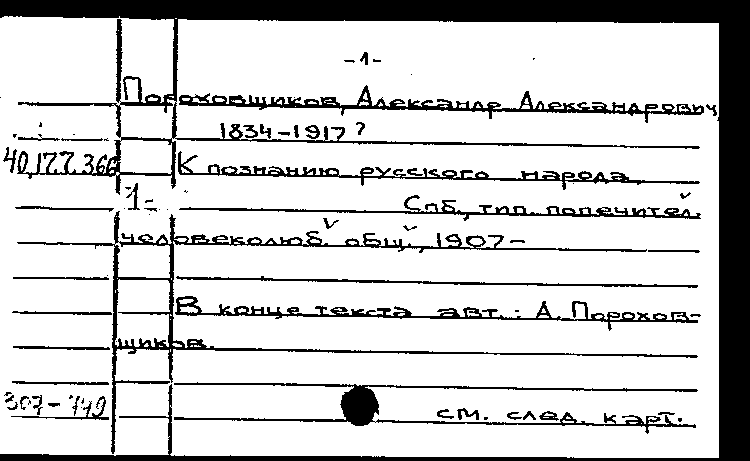 -1-
Пороховщиков, Александр Александрович,
1834-1917?
40.177.366 К познанию русского народа.
-1-
Спб., тип. попечител.
человеколюб. общ., 1907-
В конце текста авт.: А. Порохов-
щиков.
307-749
см. след. карт.